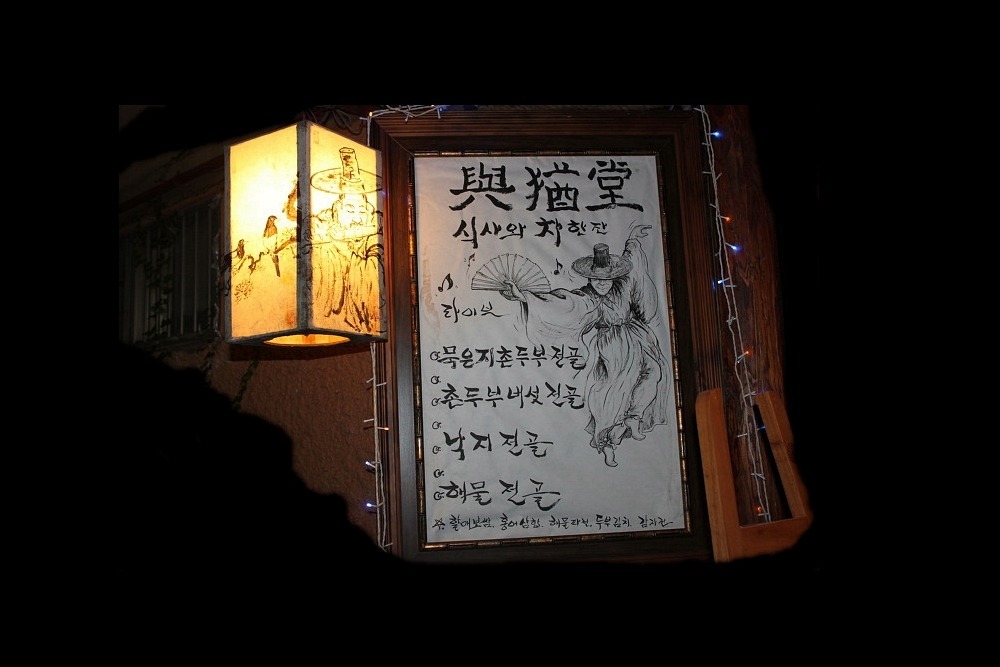 與猶堂
식사와 차 한잔
라이브
묵은지촌두부전골
촌두부버섯전골
낙지전골
해물전골
홍어삼합, 해물파전, 두부김치 감자전